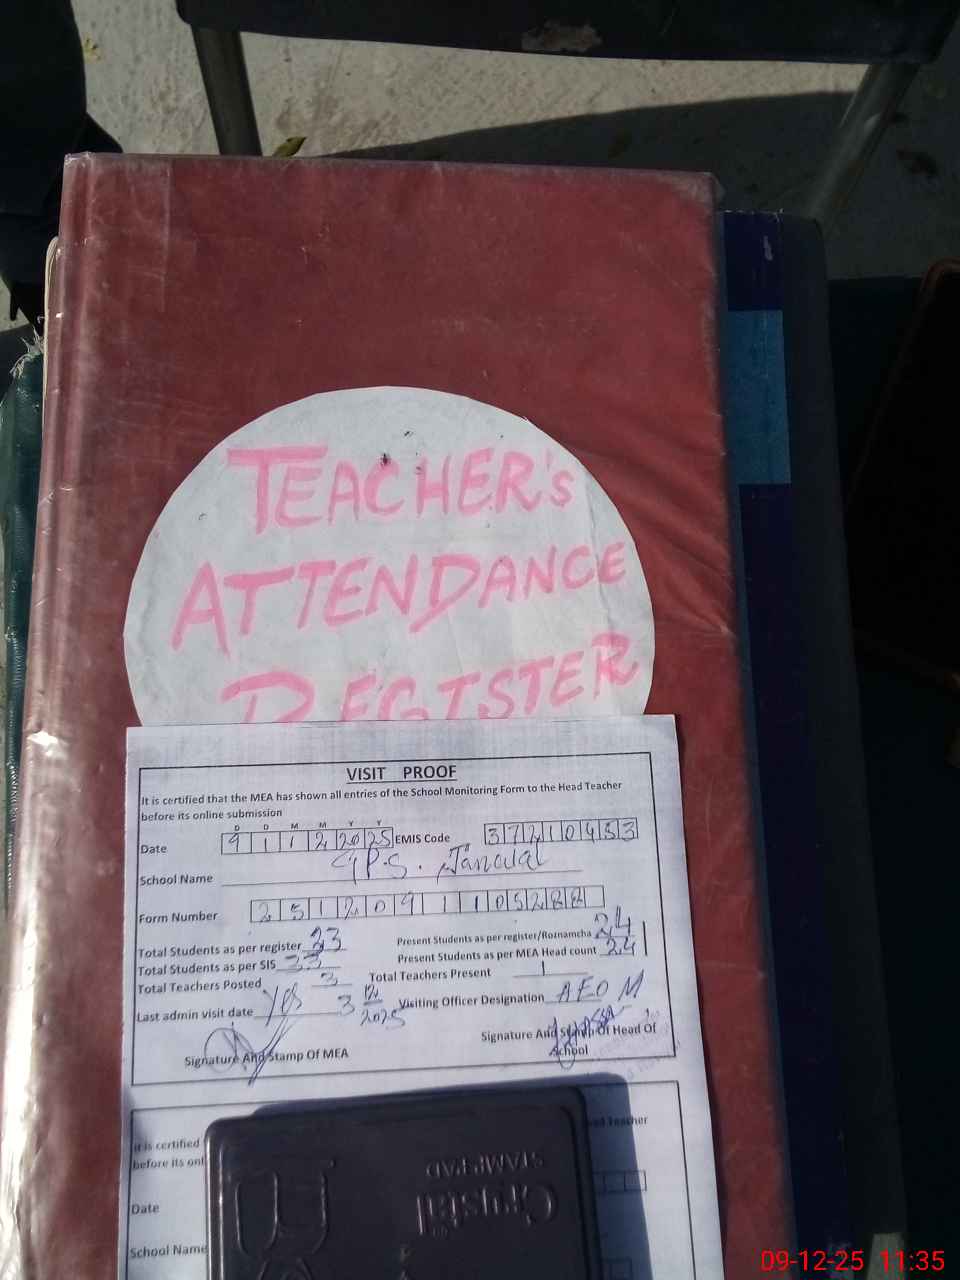 TEACHER'S
ATTENDANCE
REGISTER
VISIT PROOF
It is certified that the MEA has shown all entries of the School Monitoring Form to the Head Teacher
before its online submission
D D M M Y Y
Date 9 1 1 2 20 25 EMIS Code 3 7 2 1 0 4 5 3
School Name G.P.S.
Form Number 2 5 1 2 0 9 1 1 0 5 2 8 8
Total Students as per register 23 Present Students as per register/Roznamcha 24
Total Students as per SIS 23 Present Students as per MEA Head count 24
Total Teachers Posted 3 Total Teachers Present 1
Last admin visit date Yes 3 12 2025 Visiting Officer Designation AEO M
Signature And Stamp Of MEA Signature And Stamp Of Head Of
School
It is certified
before its onl
ad Teacher
Date
School Name
Crystal
STAMP PAD
09-12-25 11:35